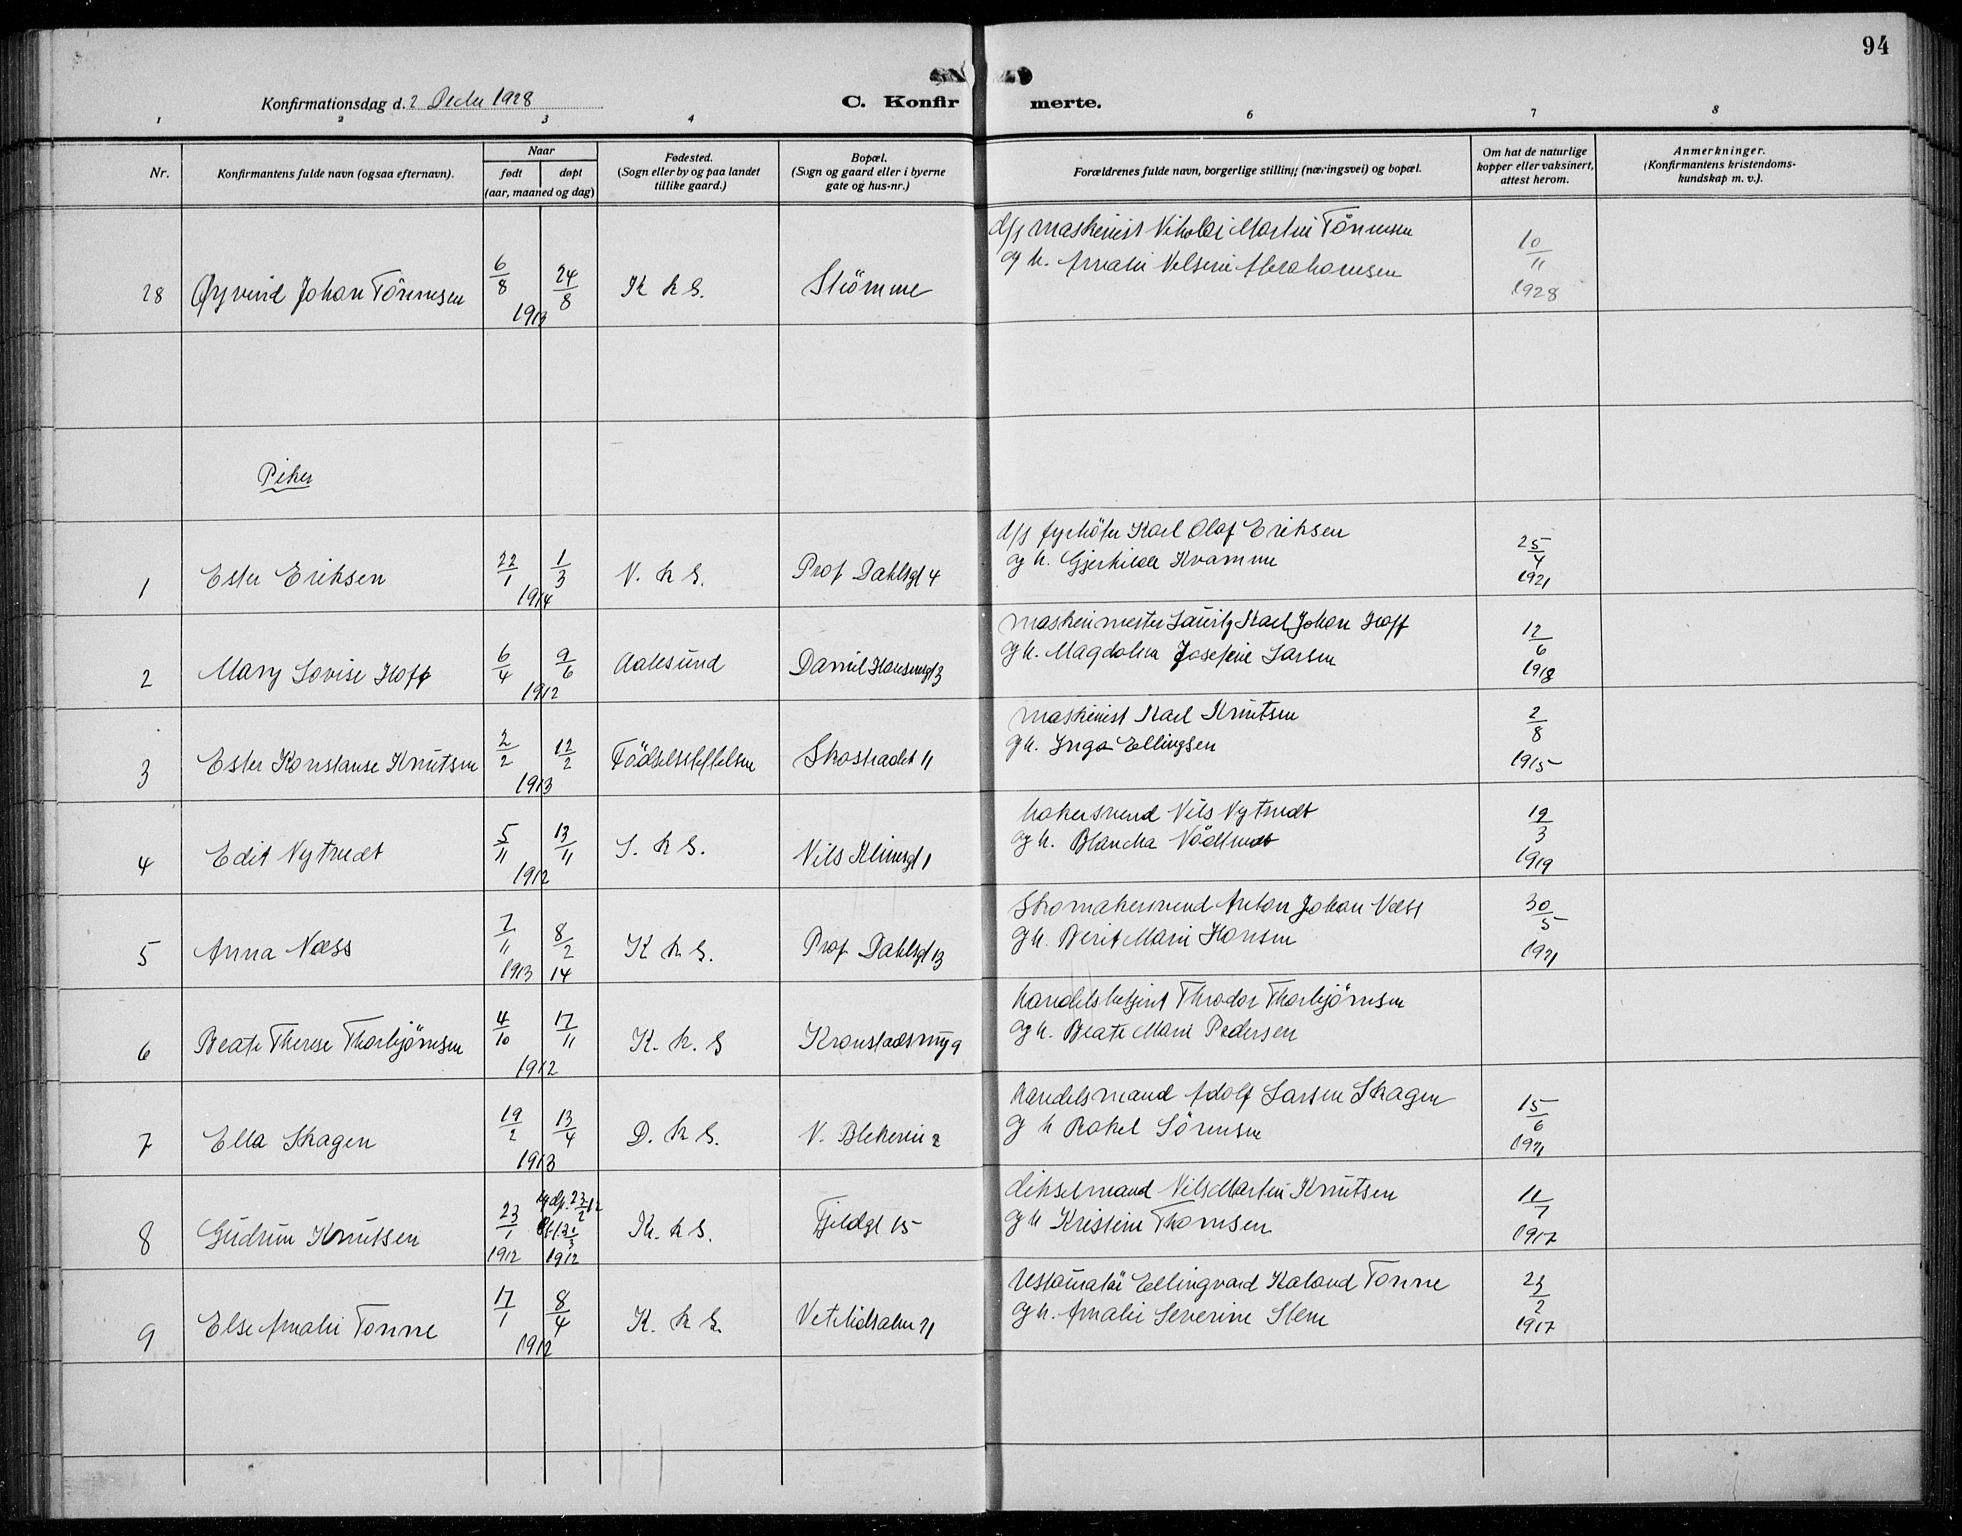 94
Konfirmationsdag d. 2 Decbr 1928
C. Konfir merte.
1 2 3 4 6 7 8
Nr.
Konfirmantens fulde navn (ogsaa efternavn).
Naar
født døpt
(aar, maaned og dag)
Fødested.
(Sogn eller by og paa landet
tillike gaard.)
Bopæl.
(Sogn og gaard eller i byerne
gate og hus-nr.)
Forældrenes fulde navn, borgerlige stilling (næringsvei) og bopæl.
Om hat de naturlige
kopper eller vaksinert,
attest herom.
Anmerkninger.
(Konfirmantens kristendoms-
kundskap m. v.).
d/s maskinist Nikolai Martin Tönnesen
og h. Amalie Nilsine Abrahamsen
28 Øyvind Johan Tönnesen 6/8 24/8 1913 K k S. Strömme 10/11 1928
Piker
d/s fyrböter Karl Olaf Eriksen
og h. Gjerhilda Kvamme
1 Ester Eriksen 22/1 1/3 1914 N. k S. Prof Dahlsgt 4 25/4 1921
maskinmester Lauritz Karl Johan Hoff
og h. Magdalena Josefine Larsen
2 Mary Lovise Hoff 6/4 9/6 1912 Aalesund Daniel Hansensgt 3 12/6 1918
maskinist Karl Knutsen
og h. Inga Ellingsen
3 Ester Konstanse Knutsen 2/2 12/2 1913 Födselsstiftelsen Skostrædet 11 2/8 1915
bakersvend Nils Nytredt
og h. Blancha
4 Edit Nytredt 5/11 13/11 1912 S. k S. Nils Klimsgt 1 19/3 1919
Skomakersvend Anton Johan Næss
og h. Berit Marie Hansen
5 Anna Næss 7/11 1913 8/2 14 K k S. Prof Dahlsgt 13 30/5 1921
handelsbetjent Theodor Thorbjörnsen
og h. Beate Marie Pedersen
6 Beate Therese Thorbjörnsen 4/10 17/11 1912 K. k. S Kronstadsvng 9
handelsmand Adolf Larsen Skagen
og h Rakel Sörensen
7 Ella Skagen 19/2 13/4 1913 D. k S. V. Blekevei 2 15/6 1921
dikselmand Nils Martin Knutsen
og h Kristine Thomsen
8 Gudrun Knutsen 23/1 1912 hjdp. 23/2 12 1912 K. k S. Fjeldgt 15 11/7 1917
restauratör Ellingvard Kaland Tonne
og h. Amalie Severine Stene
9 Else Amalie Tonne 17/1 8/4 1912 K. k S. Vetrlidsalm 21 23/2 1917